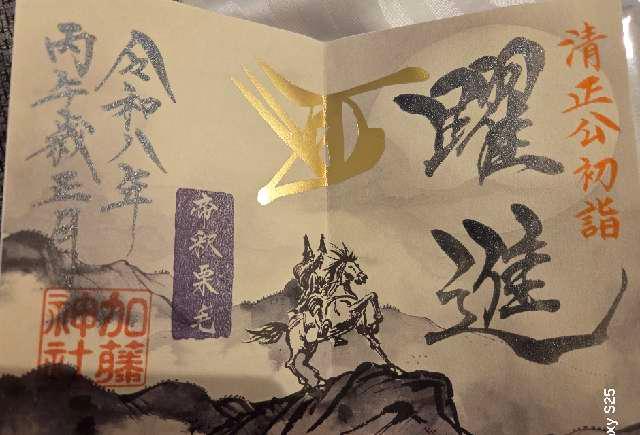 清正公初詣
躍進
帝釈栗毛
令和八年
丙午歳正月
加藤
神社
xy S25